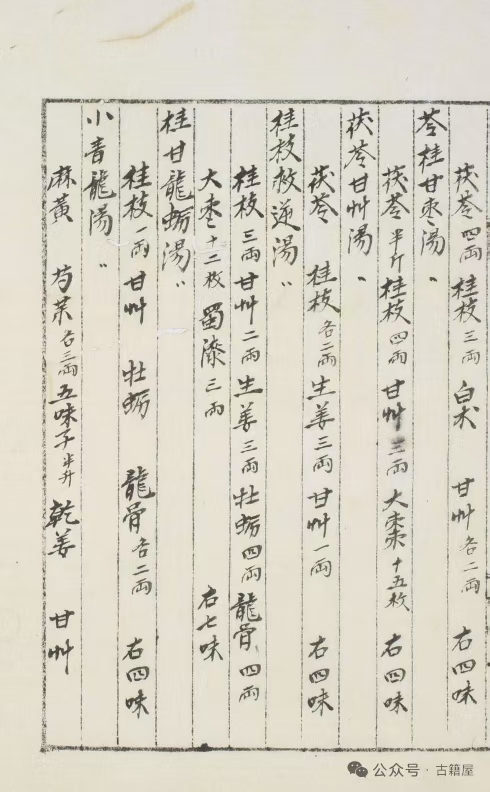 茯苓四兩桂枝三兩白朮 甘艸各二兩 右四味
苓桂甘枣湯〃
茯苓半斤桂枝四兩甘艸三兩大棗十五枚 右四味
茯苓甘艸湯〃
茯苓 桂枝各二兩生姜三兩甘艸一兩 右四味
桂枝救逆湯〃
桂枝三兩甘艸二兩生姜三兩牡蛎四兩龍骨四兩
大枣十二枚 蜀漆三兩 右七味
桂甘龍蛎湯〃
桂枝一兩甘艸 牡蛎 龍骨各二兩 右四味
小青龍湯〃
麻黄 芍茱各三兩五味子半升 乾姜 甘艸
公众号·古籍屋